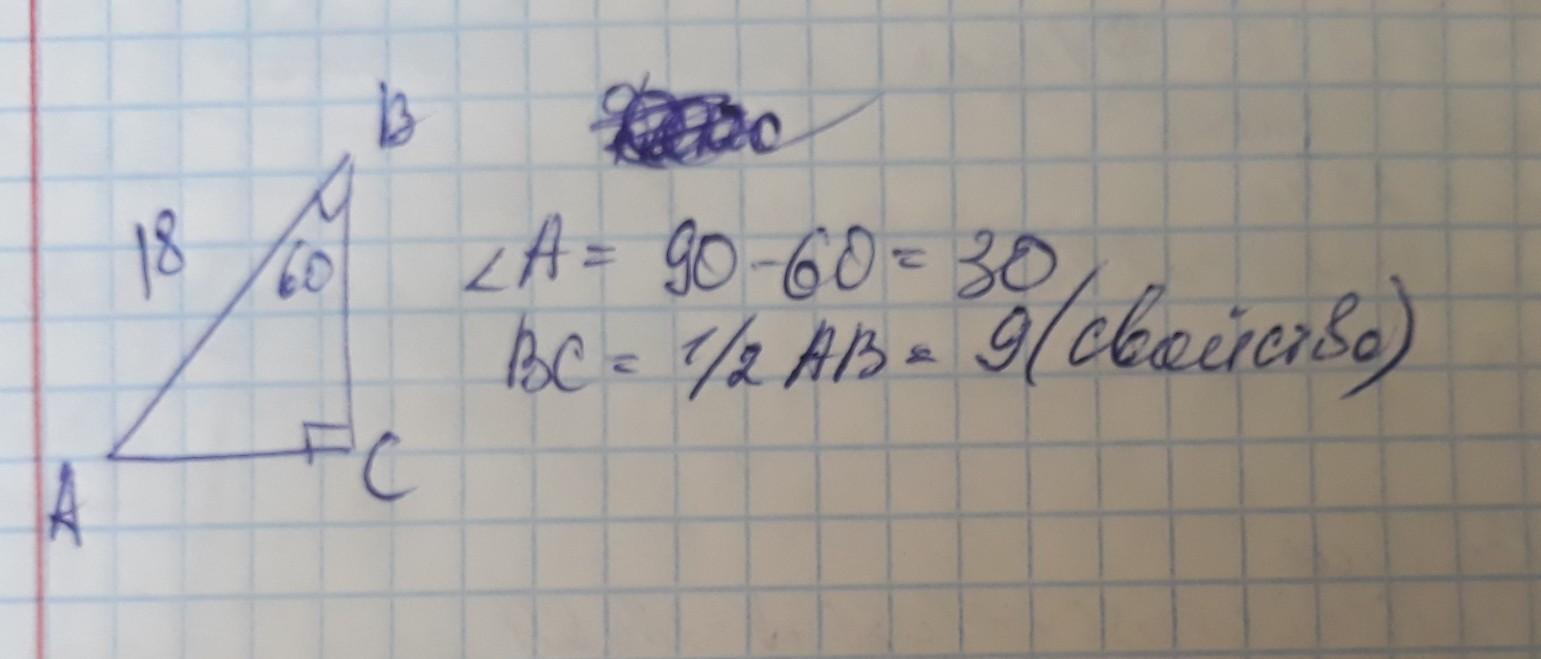 B
18
60
∠A = 90 - 60 = 30
BC = 1/2 AB = 9 (свойство)
A
C